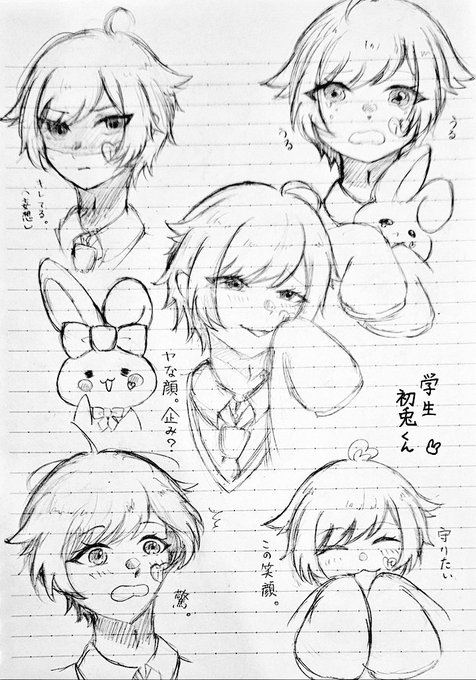 うる
うる
キレてる。
(妄想)
ヤな顔。企み?
学生
初兎くん
驚。
守りたい
この笑顔。